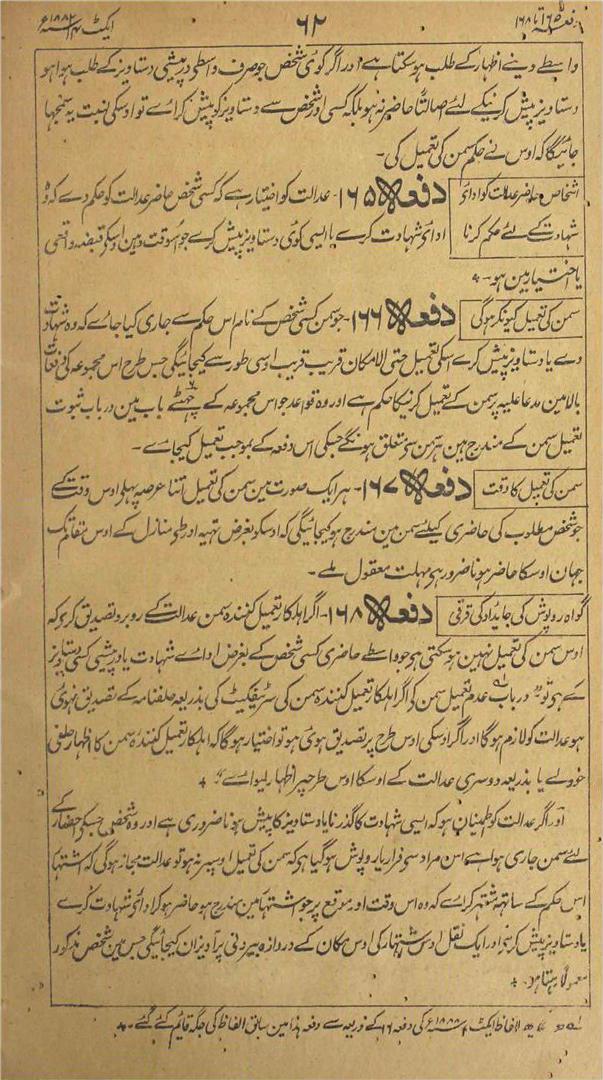 دفعہ ۱۶۵ تا ۱۶۸
۶۲
ایکٹ ۱۴ سنہ ۱۸۸۲ع
واسطے دینے اظہار کے طلب ہو سکتا ہے اور اگر کوئی شخص جو صرف واسطی درپیشی دستاویز کے طلب ہوا ہو
دستاویز پیش کرنیکے لئے اصالتاً حاضر نہ ہو بلکہ کسی اور شخص سے دستاویز کو پیش کرائے تو اوسکی نسبت یہ سمجھا
جائیگا کہ اوس نے حکم سمن کی تعمیل کی۔
اشخاص حاضر عدالت کو ادائی
شہادت کے لئے حکم کرنا
دفعہ ۱۶۵۔ عدالت کو اختیار ہے کہ کسی شخص حاضر عدالت کو حکم دے کہ وہ
ادائی شہادت کرے یا ایسی کوئی دستاویز پیش کرے جو اسوقت وہین اوسکے قبضہ واقعی
یا اختیار مین ہو۔ *
سمن کی تعمیل کیونکر ہوگی
دفعہ ۱۶۶۔ جو سمن کسی شخص کے نام اس حکم سے جاری کیا جائے کہ وہ شہادت
دے یا دستاویز پیش کرے اسکی تعمیل حتی الامکان قریب قریب اوسی طور سے کیجائیگی جس طرح اس مجموعہ کی دفعات
بالا مین مدعا علیہ پر سمن کے تعمیل کرنیکا حکم ہے اور وہ قواعد جو اس مجموعہ کے چھٹے باب مین در باب ثبوت
تعمیل سمن کے مندرج ہین ہر سمن سے متعلق ہونگے جسکی اس دفعہ کے بموجب تعمیل کیجائے۔
سمن کی تعمیل کا وقت
دفعہ ۱۶۷۔ ہر ایک صورت مین سمن کی تعمیل اتنا عرصہ پہلے اوس وقت کے
جو شخص مطلوب کی حاضری کیلئے سمن مین مندرج ہو کیجائیگی کہ اوسکو بغرض تہیہ اور طی منازل کے اوس مقام تک
جہان اوسکا حاضر ہونا ضرور ہے مہلت معقول ملے۔
گواہ روپوش کی جایداد کی قرقی
دفعہ ۱۶۸۔ اگر اہلکار تعمیل کنندہ سمن عدالت کے روبرو تصدیق کرے کہ
اوس سمن کی تعمیل نہین ہو سکتی ہے جو واسطے حاضری کسی شخص کے بغرض ادائے شہادت یا درپیشی کسی دستاویز
کے ہے تو در باب عدم تعمیل سمن کے اگر اہلکار تعمیل کنندہ سمن کی سرٹیفکیٹ کی بذریعہ حلفنامہ کے تصدیق نہوئی
ہو عدالت کو لازم ہوگا اور اگر اوسکی اوس طرح پر تصدیق ہوئی ہو تو اختیار ہوگا کہ اہلکار تعمیل کنندہ سمن کا اظہار حلفی
خود لے یا بذریعہ دوسری عدالت کے اوسکا اوس طرحپر اظہار لیوائے *
اور اگر عدالت کو اطمینان ہو کہ ایسی شہادت کا گذرنا یا دستاویز کا پیش ہونا ضروری ہے اور وہ شخص جسکے احضار کے
لئے سمن جاری ہوا ہے اس مراد سے فرار یا روپوش ہو گیا ہے کہ سمن کی تعمیل اوسپر نہو تو عدالت مجاز ہوگی کہ اشتہار
اس حکم کے ساتھ مشتہر کرائے کہ وہ اس وقت اور موقع پر جو اشتہار مین مندرج ہو حاضر ہو کر ادائی شہادت کرے
یا دستاویز پیش کرے اور ایک نقل اوس اشتہار کی اوس مکان کے دروازہ بیرونی پر آویزان کیجائیگی جس مین شخص مذکور
معمولاً رہتا ہو۔ *
الفاظ ایکٹ سنہ ۱۸۸۸ع کی دفعہ ۱۶ کے ذریعہ سے دفعہ ہذا مین سابق الفاظ کی جگہ قائم کئے گئے۔ *